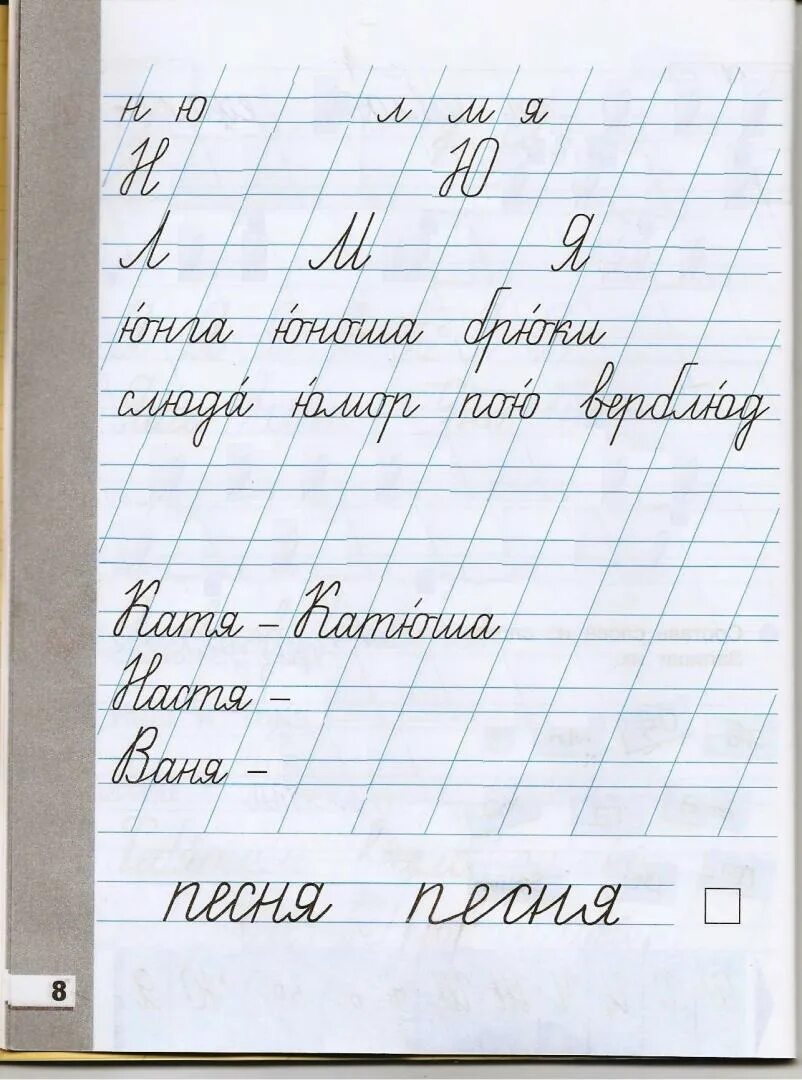 н ю л м я
Н Ю
Л М Я
ю́нга ю́ноша брю́ки
слюда́ ю́мор пою́ верблю́д
Катя – Катю́ша
Настя –
Ваня –
песня песня
8